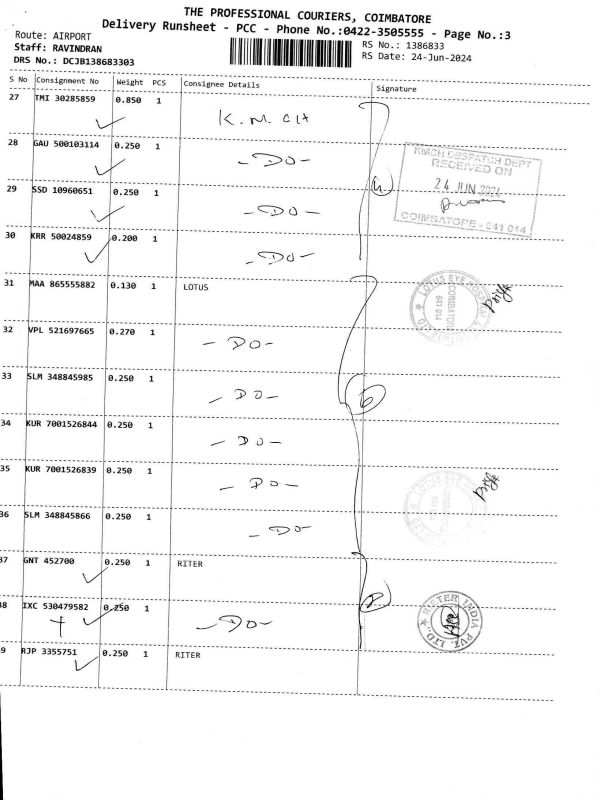 THE PROFESSIONAL COURIERS, COIMBATORE
Delivery Runsheet - PCC - Phone No.:0422-3505555 - Page No.:3
Route: AIRPORT
Staff: RAVINDRAN
DRS No.: DCJB138683303
RS No.: 1386833
RS Date: 24-Jun-2024
S No Consignment No Weight PCS Consignee Details Signature
27 TMI 30285859 0.850 1 K.M CH
28 GAU 500103114 0.250 1 -DO-
29 SSD 10960651 0.250 1 -DO-
30 KRR 50024859 0.200 1 -DO-
KMCH DESPATCH DEPT
RECEIVED ON
24 JUN 2024
COIMBATORE - 641 014
31 MAA 865555882 0.130 1 LOTUS
LOTUS EYE HOSPITAL
COIMBATORE
641 014
32 VPL 521697665 0.270 1 -DO-
33 SLM 348845985 0.250 1 -DO-
6
34 KUR 7001526844 0.250 1 -DO-
35 KUR 7001526839 0.250 1 -DO-
LOTUS EYE
36 SLM 348845866 0.250 1 -DO-
37 GNT 452700 0.250 1 RITER
38 IXC 530479582 0.250 1 -DO-
RIETER INDIA PVT. LTD.
39 RJP 3355751 0.250 1 RITER